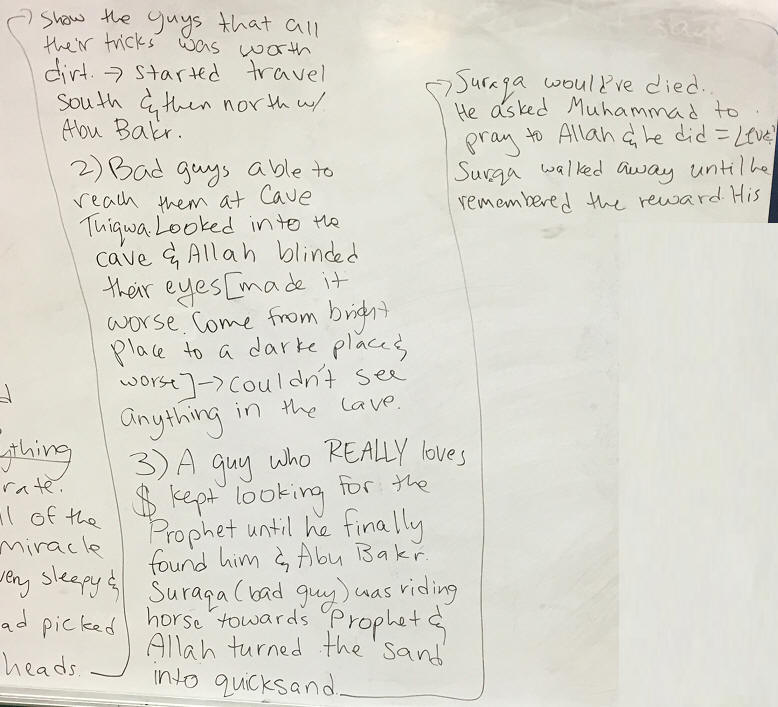 d
ything
rate.
ll of the
miracle
very sleepy &
ad picked
heads.
Show the guys that all
their tricks was worth
dirt. → started travel
South & then north w/
Abu Bakr.
2) Bad guys able to
reach them at Cave
Thigwa. Looked into the
cave & Allah blinded
their eyes [made it
worse. Come from bright
place to a darke place &
worse] → couldn't see
anything in the cave.
3) A guy who REALLY loves
$ kept looking for the
Prophet until he finally
found him & Abu Bakr.
Suraqa (bad guy) was riding
horse towards Prophet &
Allah turned the sand
into quicksand.
Suraqa would've died.
He asked Muhammad to
pray to Allah & he did =
Suraqa walked away until he
remembered the reward. His